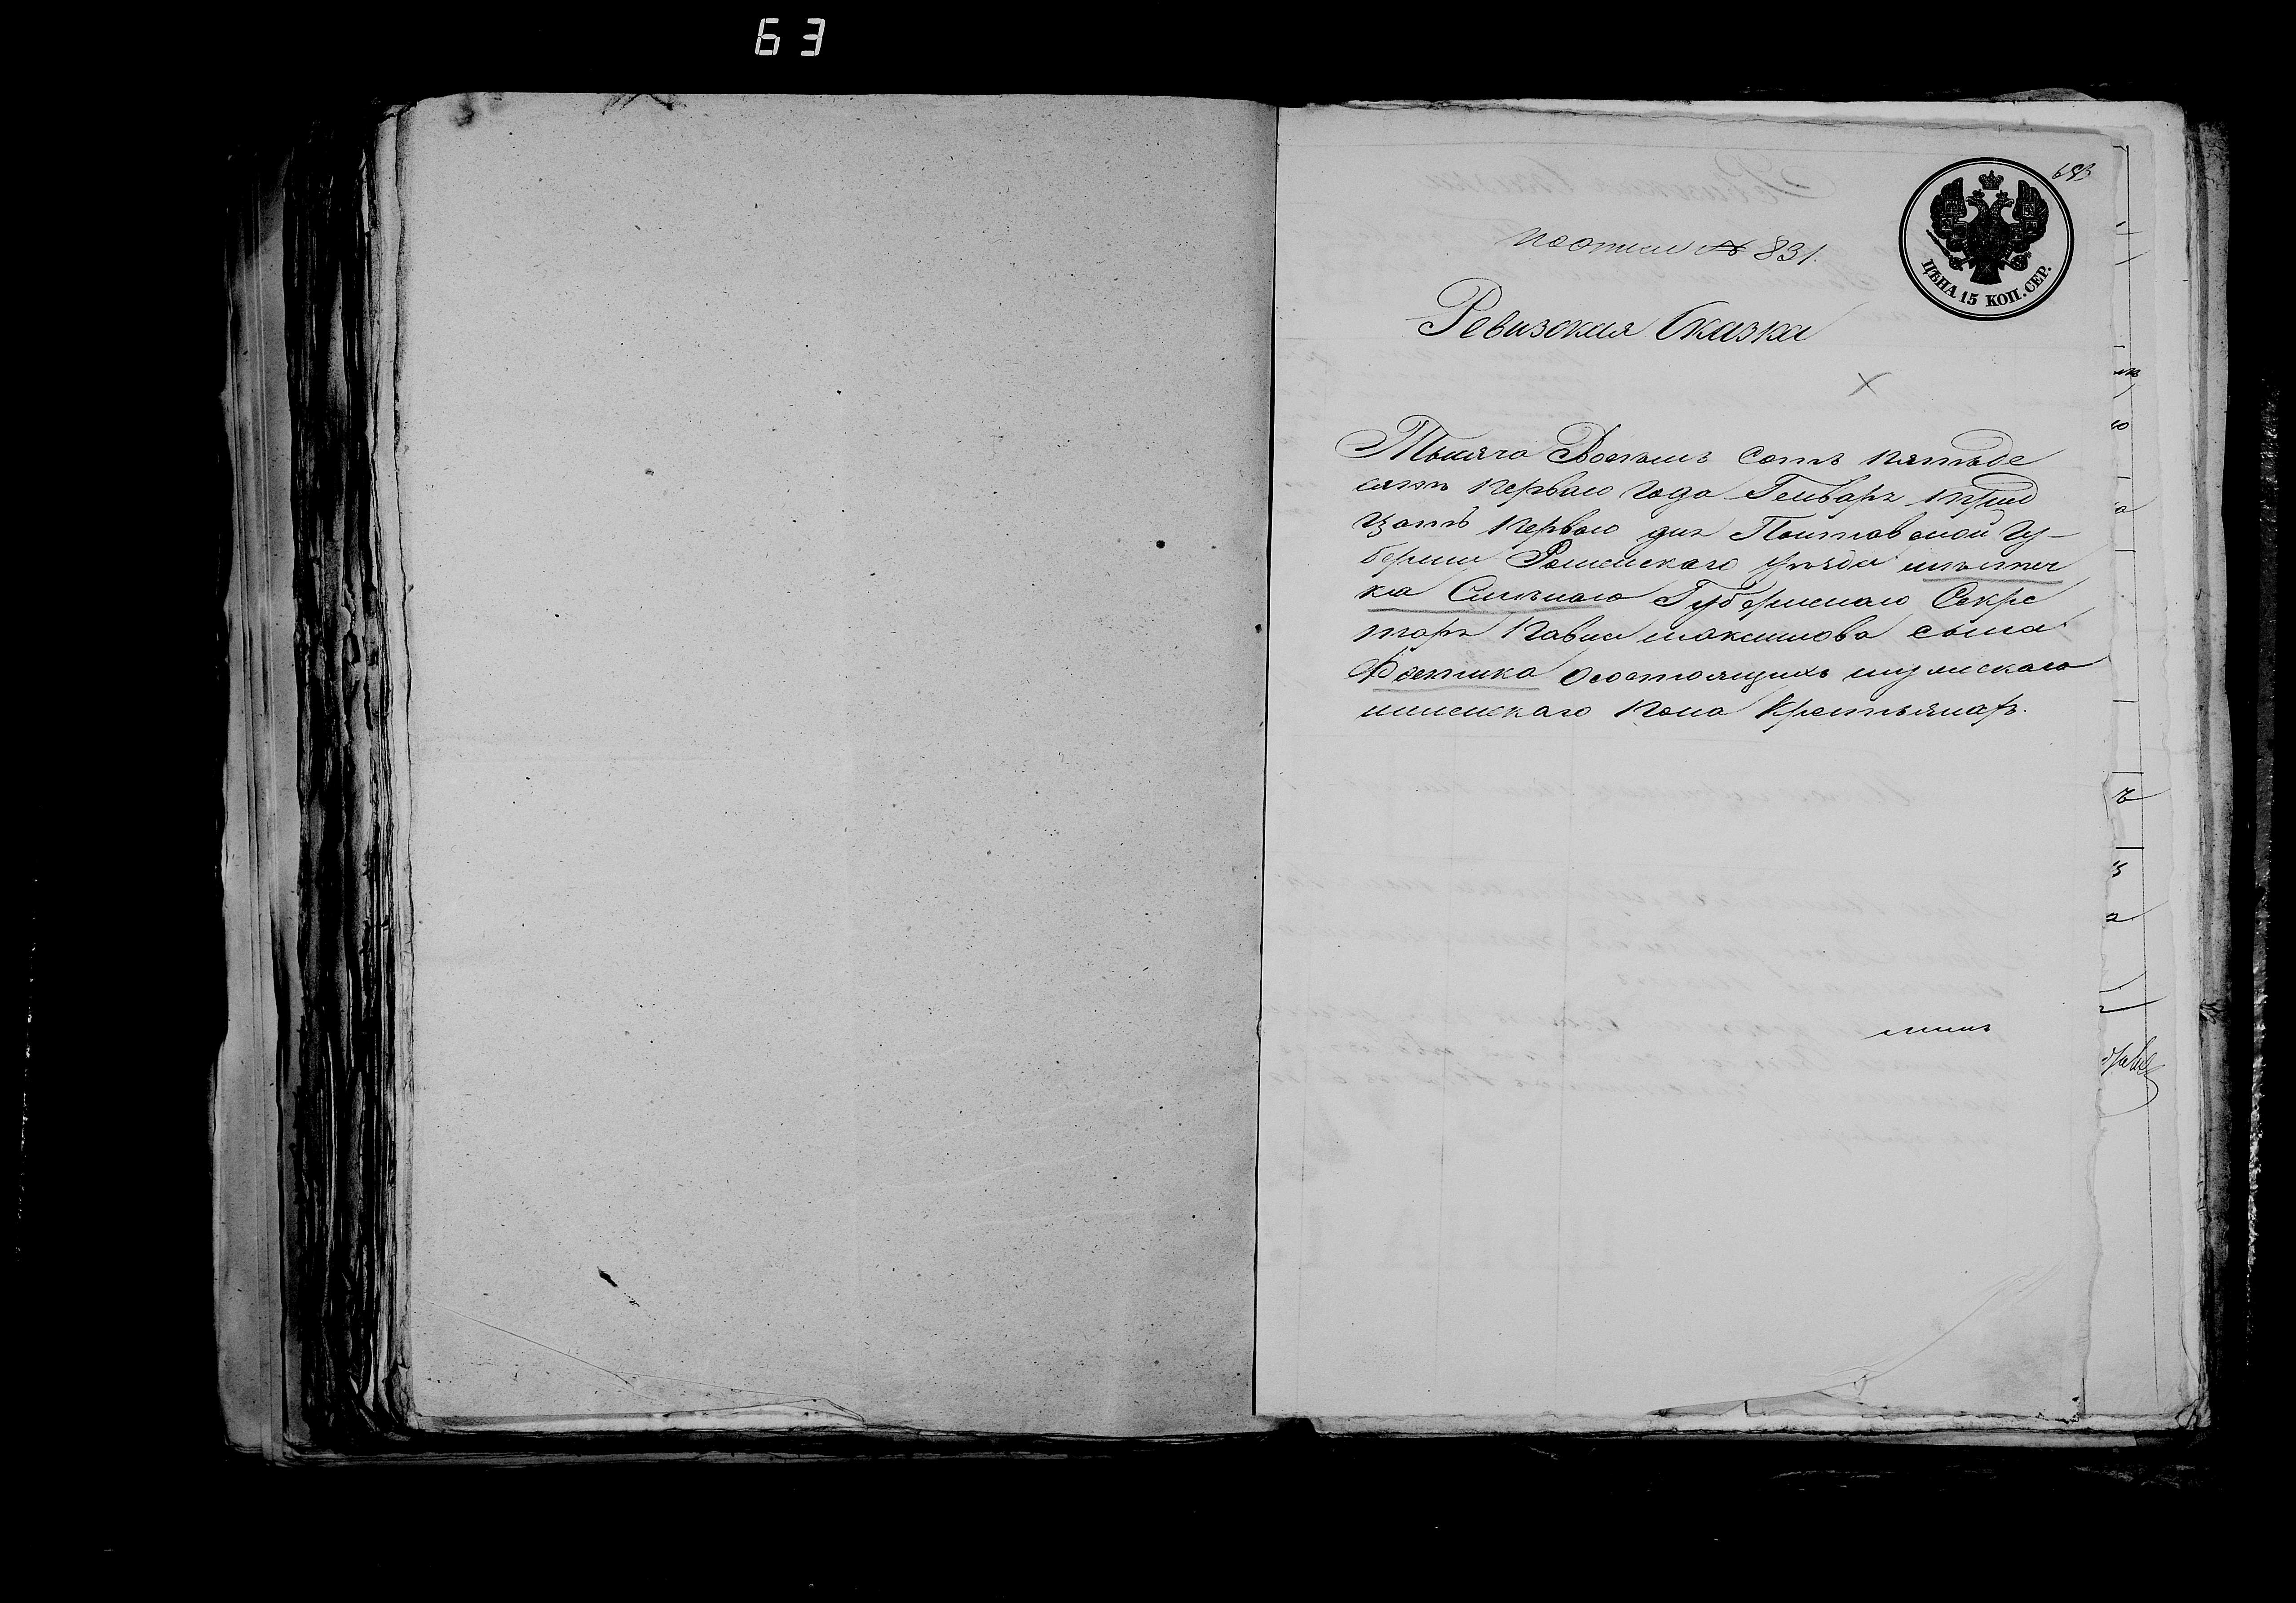 63
683
ЦѢНА 15 КОП. СЕР.
по описи № 831.
Ревизская Сказка
Тысяча Восемь сотъ пятьде
сятъ перваго года Генваря трид
цать перваго дня Полтавской Гу-
берніи Роменскаго уѣзда мѣстеч
ка Смѣлаго Губернскаго Секре
таря Павла Максимова сына
о состоящихъ мужскаго
женскаго пола крестьянахъ.